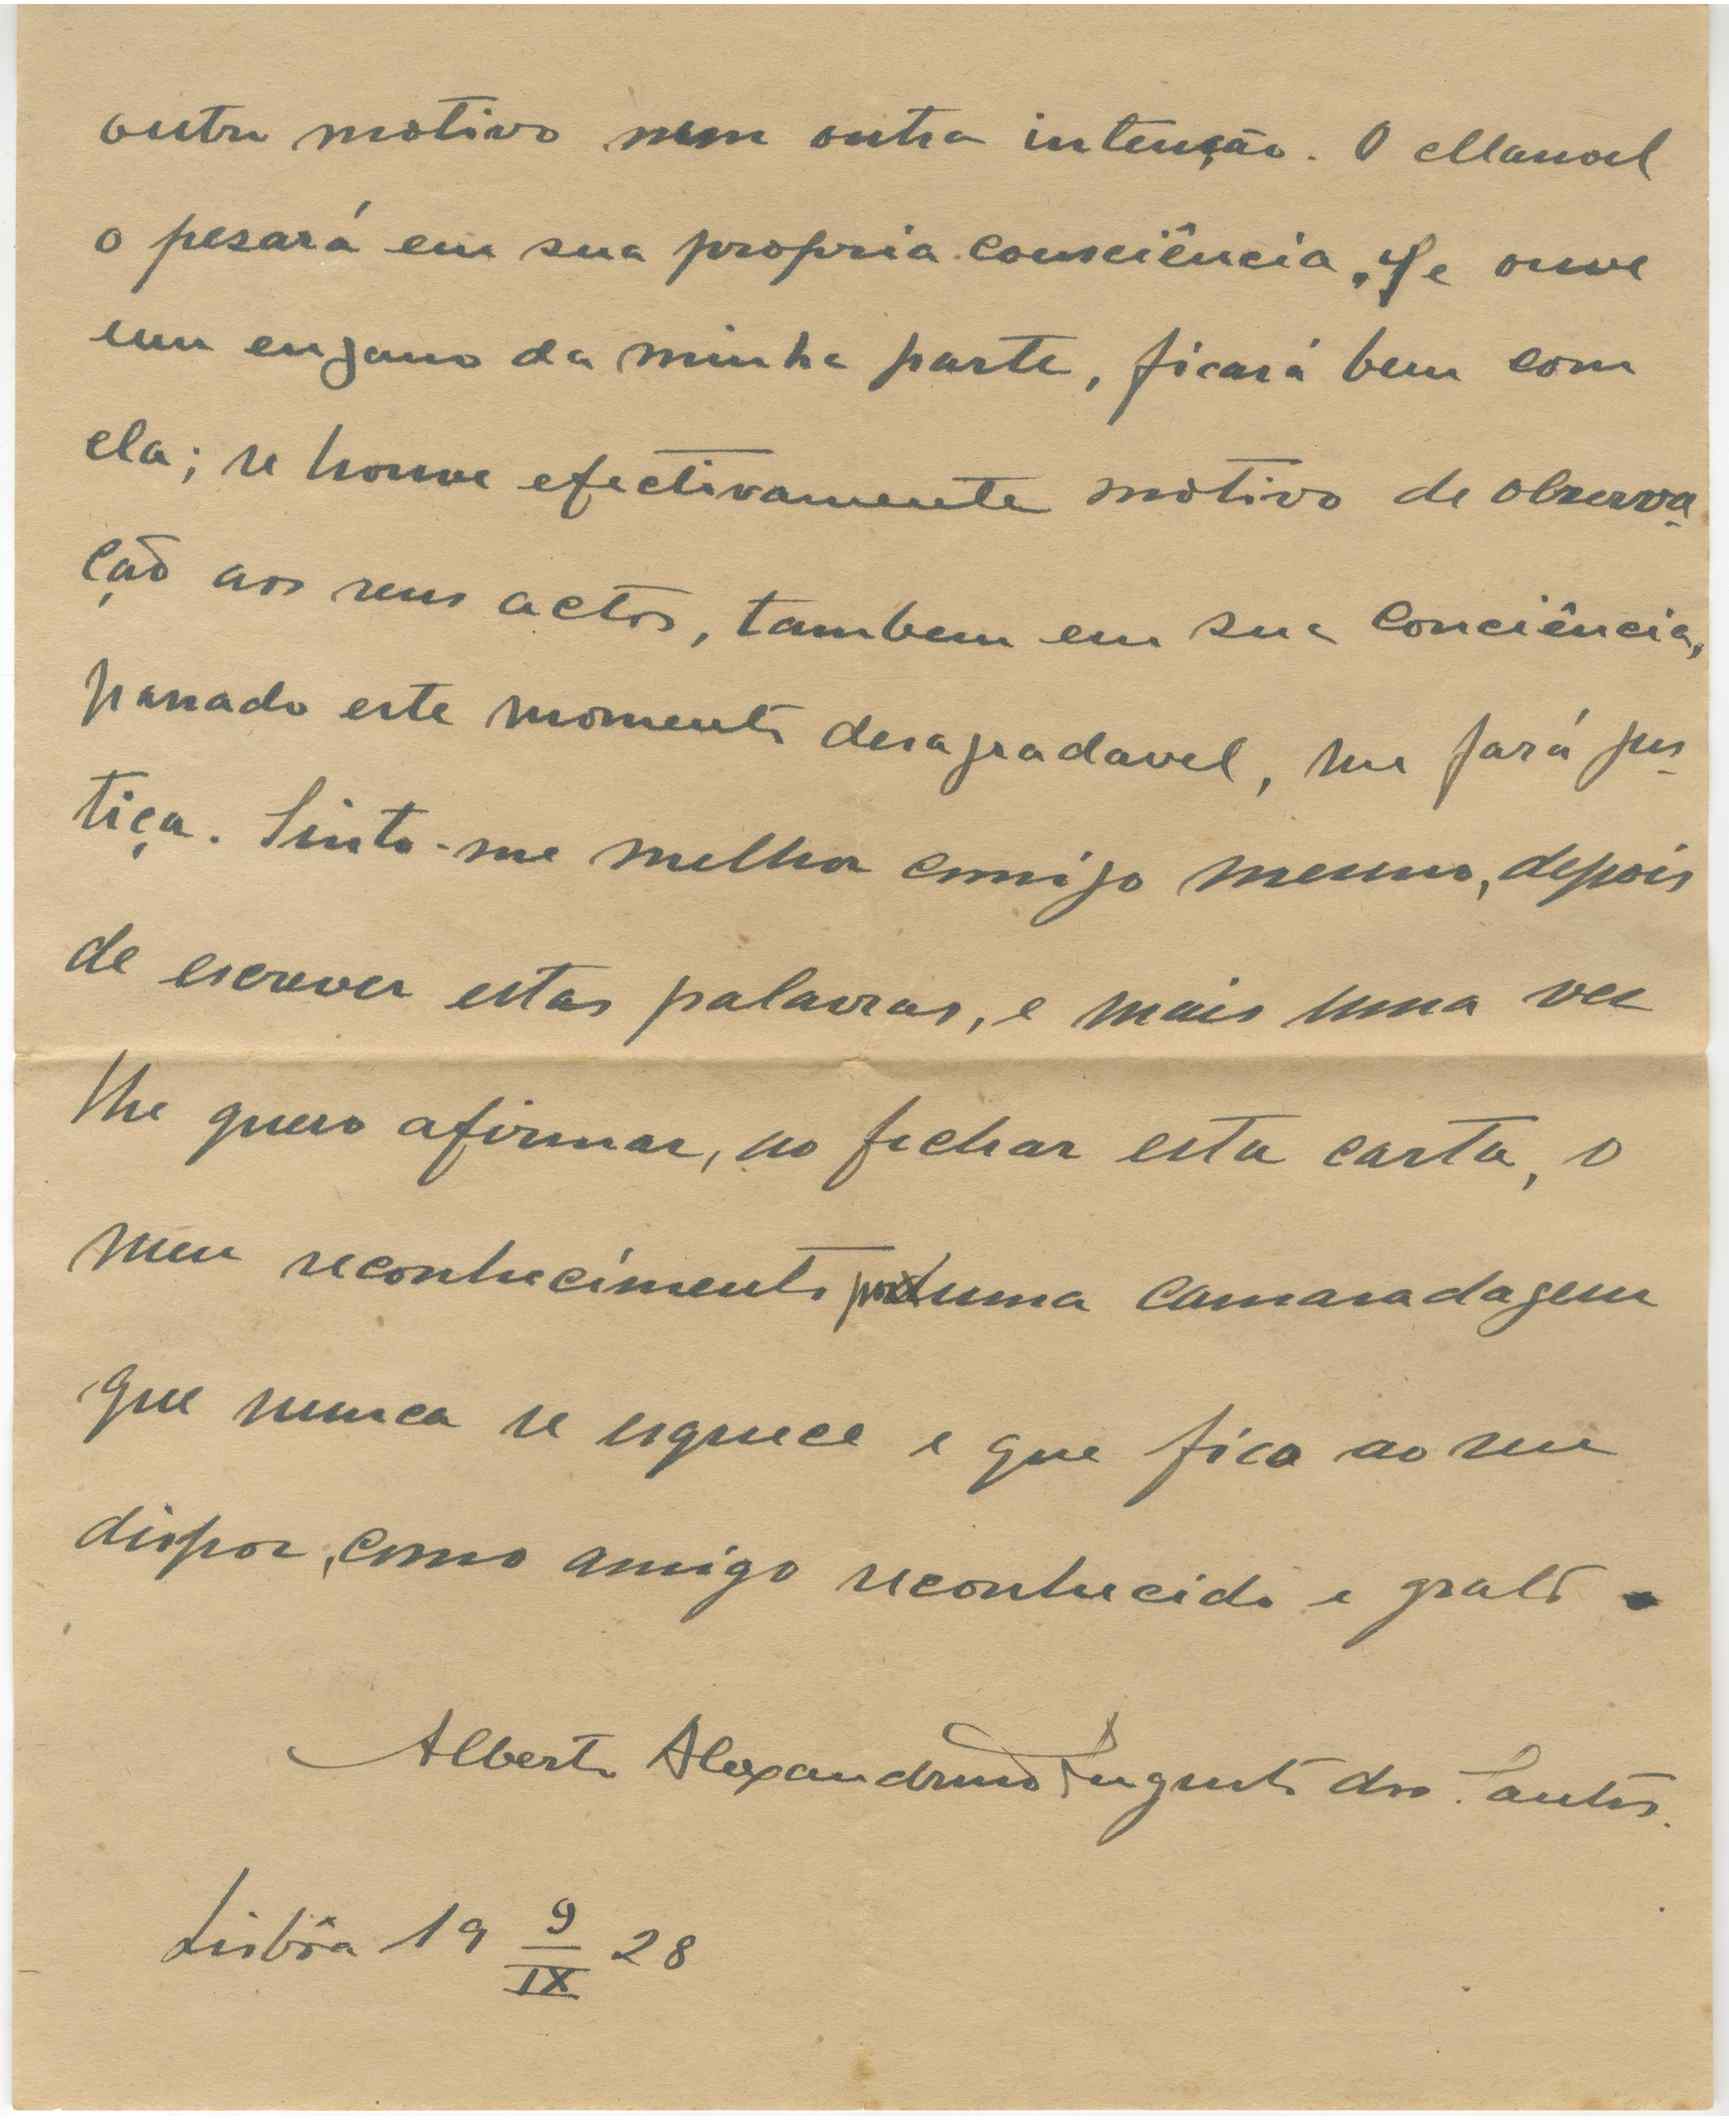 outro motivo nem outra intenção. O Manoel
o pesará em sua propria consciência. Se ouve
um engano da minha parte, ficará bem com
ela; se houve efectivamente motivo de observa-
ção aos seus actos, tambem em sua conciência,
passado este momento desagradavel, me fará jus-
tiça. Sinto-me melhor comigo mesmo, depois
de escrever estas palavras, e mais uma vez
lhe quero afirmar, ao fechar esta carta, o
meu reconhecimento por uma camaradagem
que nunca se esquece e que fica ao seu
dispor, como amigo reconhecido e grato.
Alberto Alexandrino Augusto dos Santos.
Lisbôa 19 9/IX 28